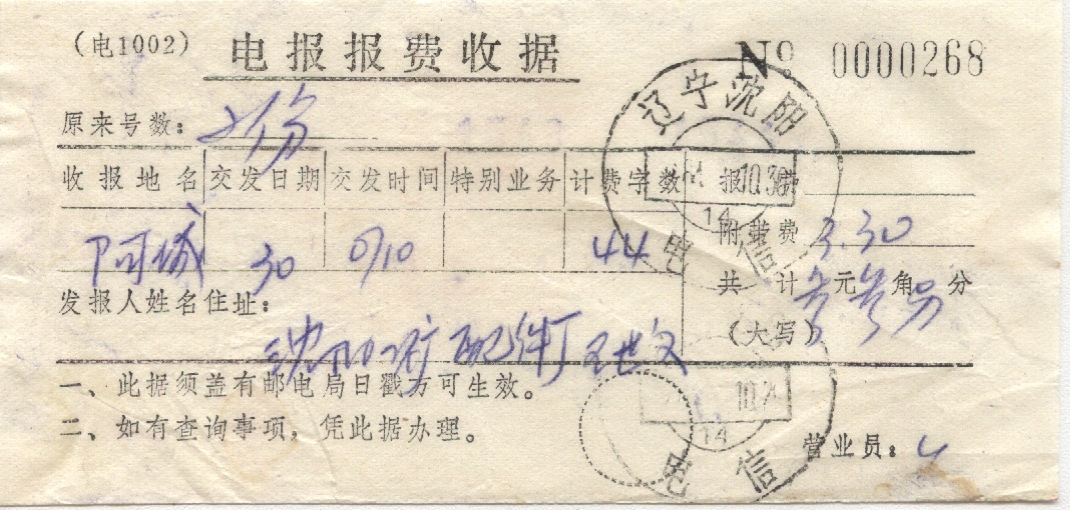 (电1002) 电报报费收据 № 0000268
辽宁沈阳
原来号数：份
收报地名 交发日期 交发时间 特别业务 计费字数 报费
10.30
14
电信
阿城 30 0910 44 附带费 3.30
共计 元 角 分
发报人姓名住址：
(大写)
沈阳矿配件厂王世文
一、此据须盖有邮电局日戳方可生效。
10.2
14
二、如有查询事项，凭此据办理。
营业员：
电信